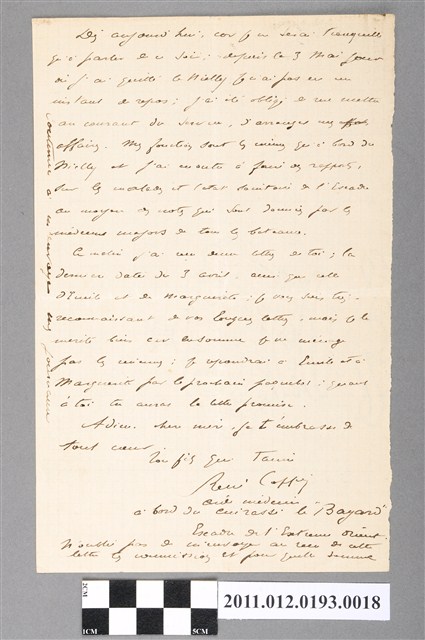 Dès aujourd'hui, car je serai tranquille
qu'à partir de ce soir; depuis le 3 Mai jour
où j'ai quitté le Nielly je n'ai pas eu un
instant de repos; j'ai été obligé de me mettre
au courant du service, d'arranger mes
affaires. Mes fonctions sont les mêmes qu'à bord du
Nielly et j'ai ensuite à faire des rapports,
sur les malades et l'état sanitaire de l'Escadre
au moyen des notes qui sont données par les
médecins majors de tous les bateaux.
Ce matin j'ai reçu deux lettres de toi; la
dernière datée du 3 avril, ainsi que celle
d'Emile et de Marguerite; je vous suis très
reconnaissant de vos longues lettres, mais je le
mérite bien car en somme je ne
par les miennes; je répondrai à Emile et à
Marguerite par le prochain paquebot; quant
à toi tu auras la lettre promise.
Adieu, cher mère, je t'embrasse de
tout cœur.
Ton fils qui t'aime
René Coppin
aide médecin
à bord du cuirassé le Bayard
Escadre de l'Extrême orient.
N'oublie pas de m'envoyer au reçu de cette
lettre les commissions et pour quelle somme
continuer à m'envoyer les journaux
2CM
1CM
5CM
2011.012.0193.0018